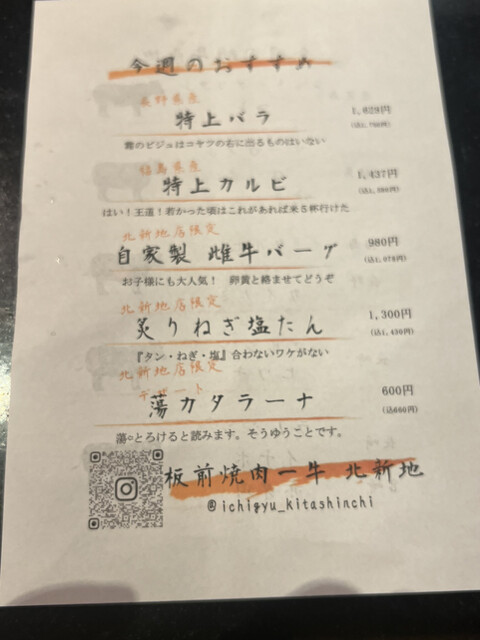 今週のおすすめ
長野県産
特上バラ
1,629円
霜のビジュはコヤツの右に出るものはいない
福島県産
特上カルビ
1,437円
はい！王道！若かった頃はこれがあれば米５杯行けた
北新地店限定
自家製 雌牛バーグ
980円
(込1,078円)
お子様にも大人気！ 卵黄と絡ませてどうぞ
北新地店限定
炙りねぎ塩たん
1,300円
(込1,430円)
『タン・ねぎ・塩』合わないワケがない
北新地店限定
デザート
蕩カタラーナ
600円
(込660円)
蕩○とろけると読みます。そうゆうことです。
板前焼肉一牛 北新地
@ichigyu_kitashinchi